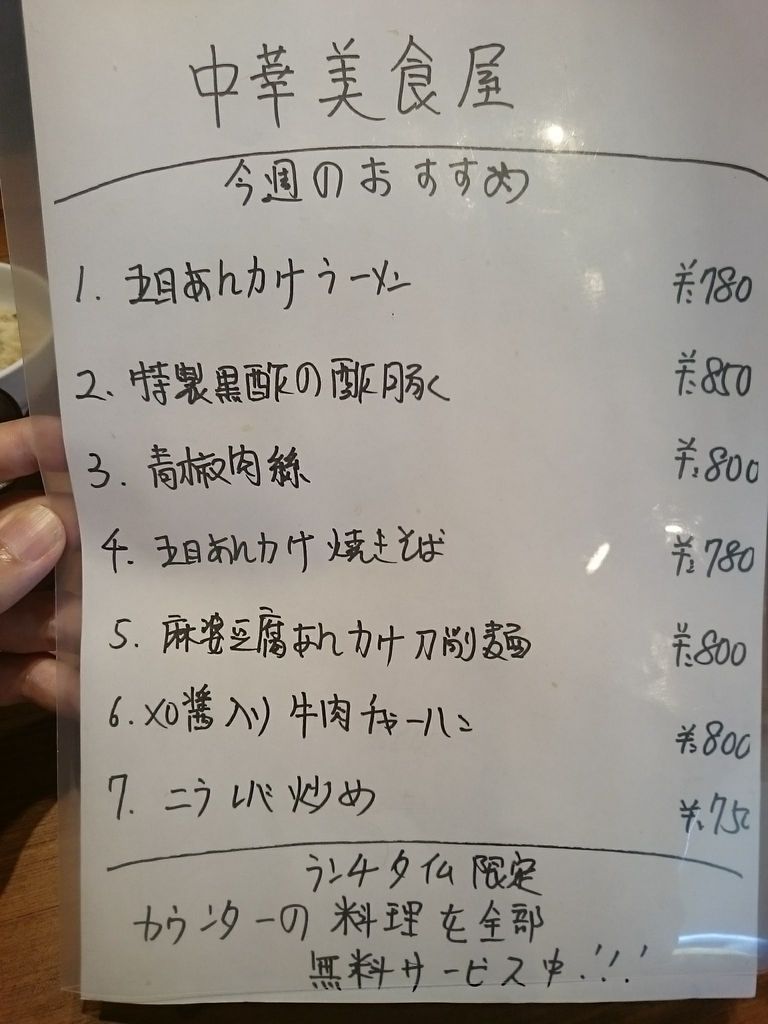 中華美食屋
今週のおすすめ
1. 五目あんかけラーメン ¥780
2. 特製黒酢の酢豚 ¥850
3. 青椒肉絲 ¥800
4. 五目あんかけ焼きそば ¥780
5. 麻婆豆腐あんかけ刀削麺 ¥800
6. XO醬入り牛肉チャーハン ¥800
7. ニラレバ炒め ¥750
ランチタイム限定
カウンターの料理を全部
無料サービス中!!!